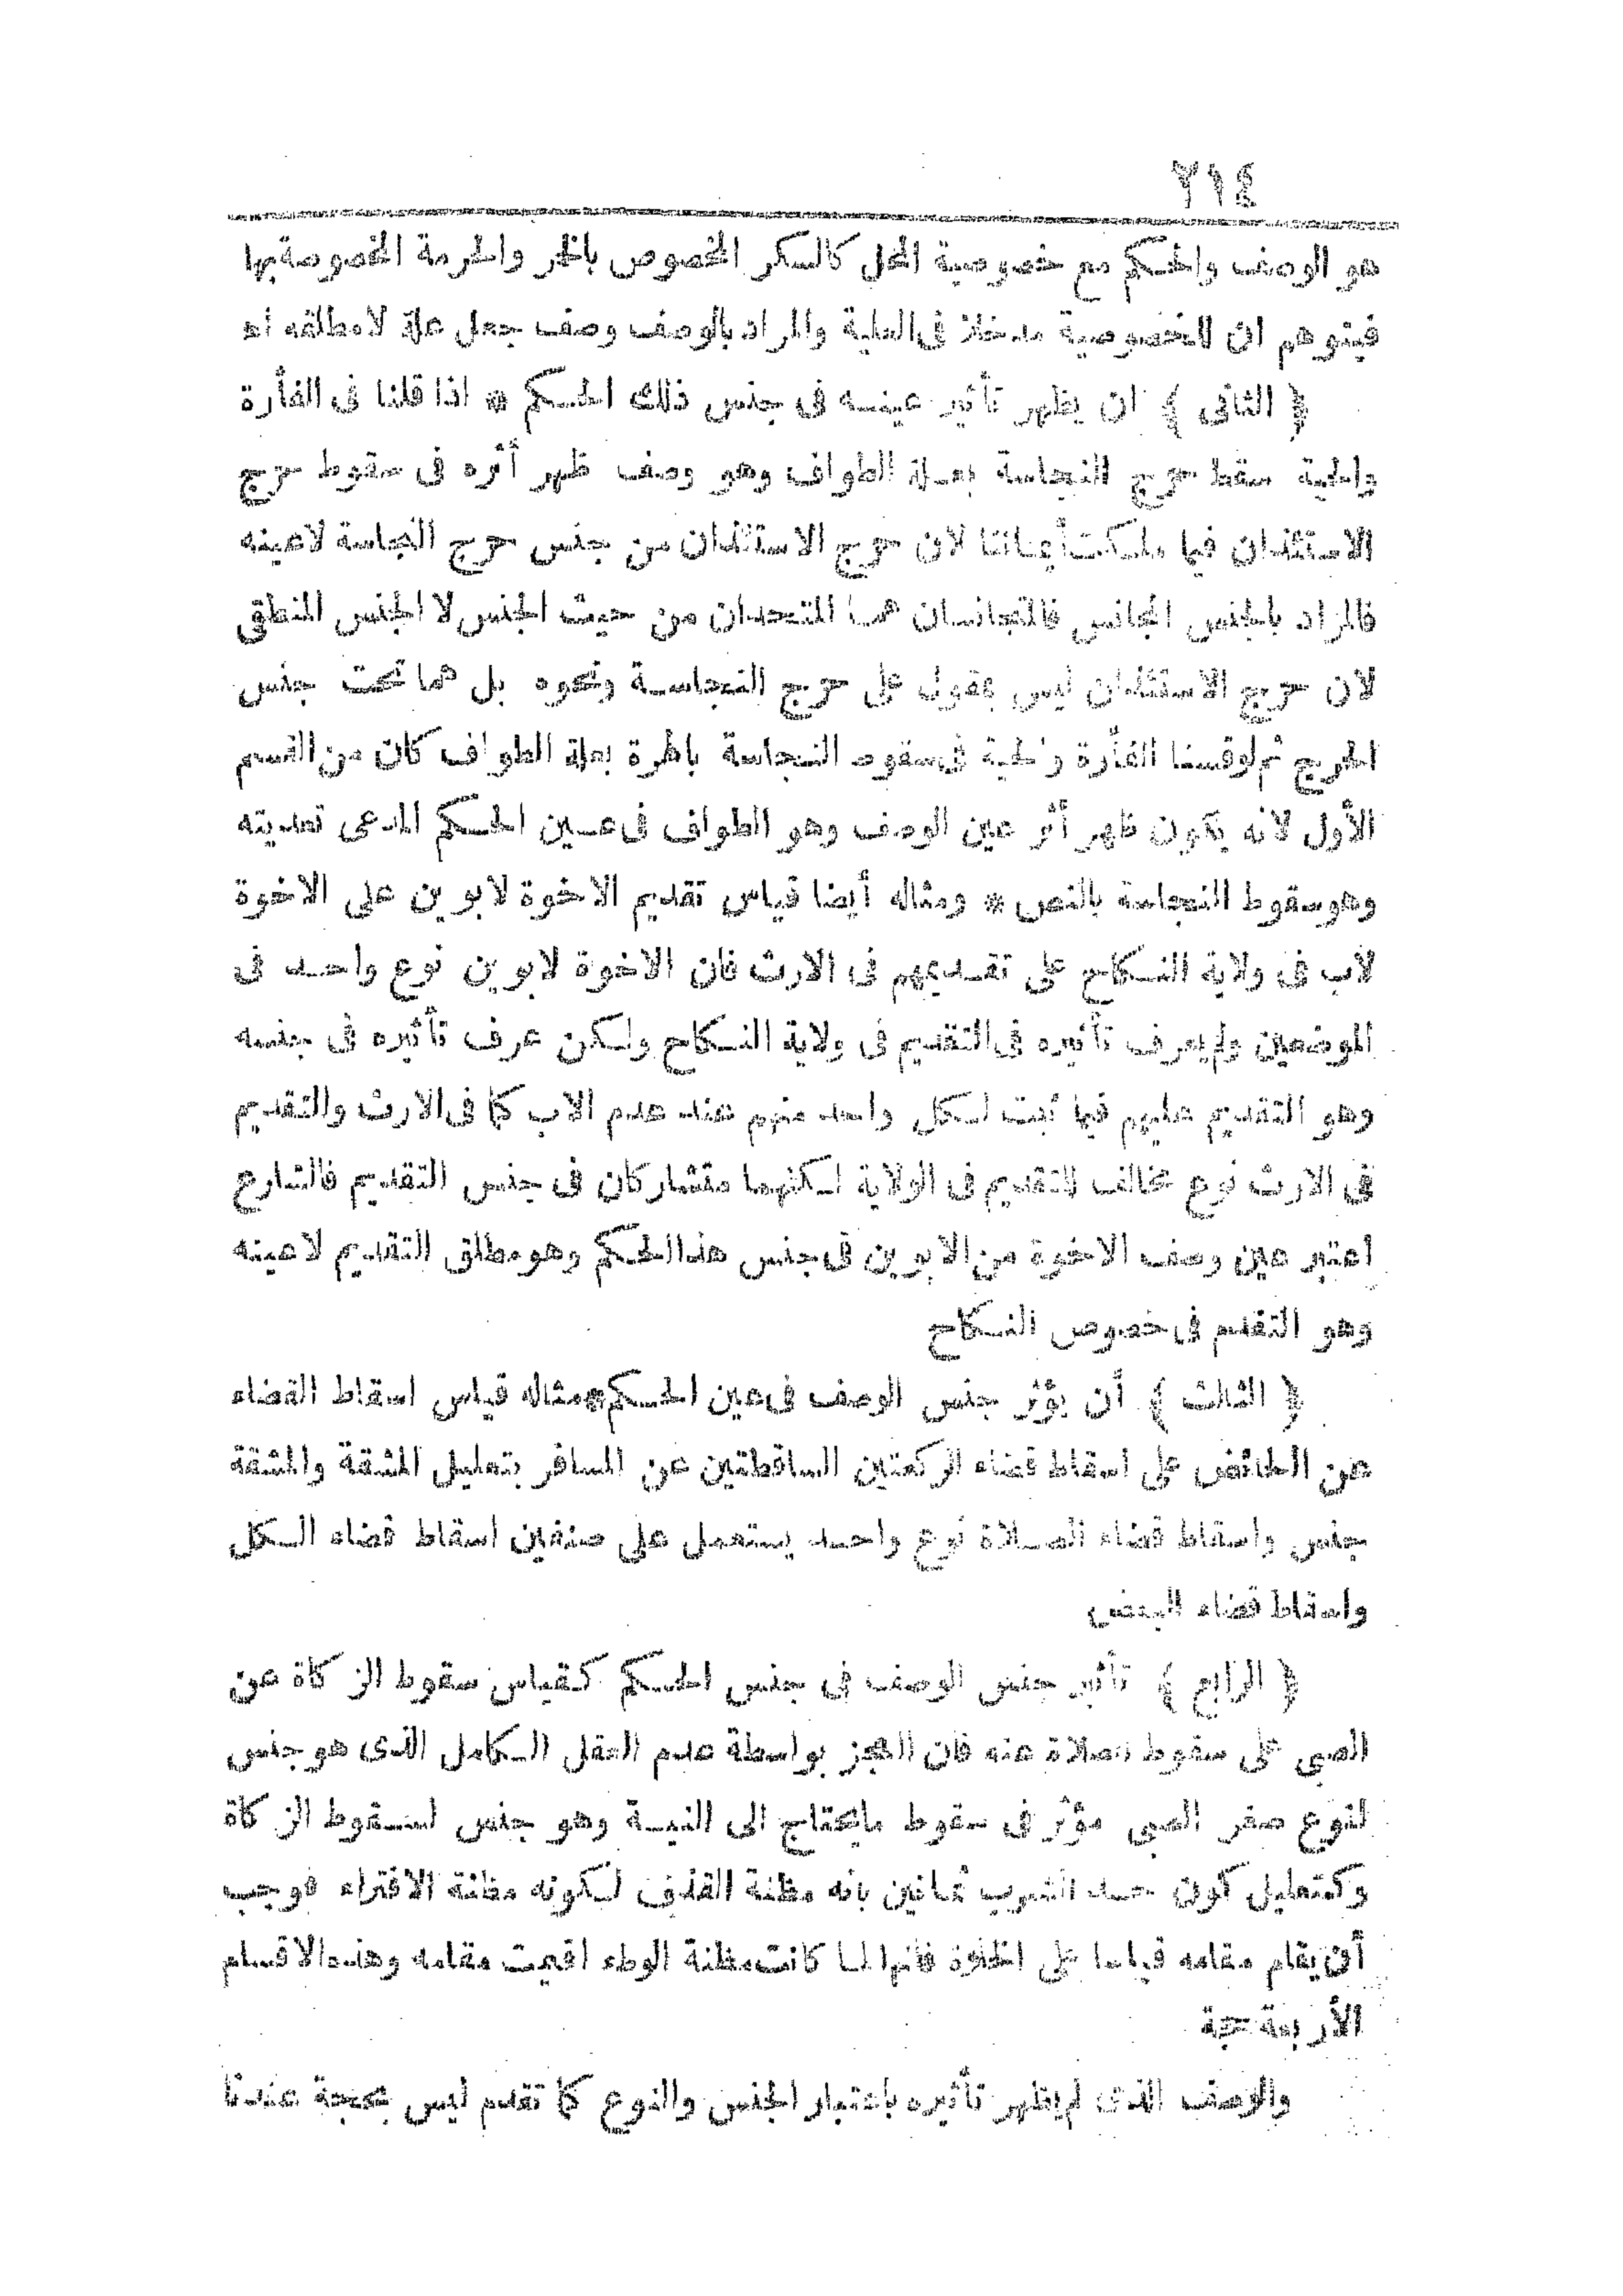 ٢١٤
هو الوصف والحكم مع خصوصية المحل كالسكر المخصوص بالخمر والحرمة المخصوصة بها
فيتوهم ان للخصوصية مدخلا فى العلية والمراد بالوصف وصف جعل علة لا مطلقه اه
﴿ الثانى ﴾ ان يظهر تأثير عينه فى جنس ذلك الحكم * اذا قلنا فى الفأرة
والحية سقط حرج النجاسة بعلة الطواف وهو وصف ظهر أثره فى سقوط حرج
الاستئذان فيما ملكت أيماننا لان حرج الاستئذان من جنس حرج النجاسة لا عينه
فالمراد بالجنس المجانس فالمتجانسان هما المتحدان من حيث الجنس لا الجنس المنطقى
لان حرج الاستئذان ليس بمقول على حرج النجاسة ونحوه بل هما تحت جنس
الحرج ثم لو قسنا الفأرة والحية فى سقوط النجاسة بالهرة بعلة الطواف كان من القسم
الأول لانه يكون ظهر أثر عين الوصف وهو الطواف فى عين الحكم المدعى تعديته
وهو سقوط النجاسة بالنص * ومثاله أيضا قياس تقديم الاخوة لابوين على الاخوة
لاب فى ولاية النكاح على تقديمهم فى الارث فان الاخوة لابوين نوع واحد فى
الموضعين ولم يعرف تأثيره فى التقديم فى ولاية النكاح ولكن عرف تأثيره فى جنسه
وهو التقديم عليهم فيما ثبت لكل واحد منهم عند عدم الاب كما فى الارث والتقديم
فى الارث نوع مخالف للتقديم فى الولاية لكنهما متشاركان فى جنس التقديم فالشارع
اعتبر عين وصف الاخوة من الابوين فى جنس هذا الحكم وهو مطلق التقديم لا عينه
وهو التقدم فى خصوص النكاح
﴿ الثالث ﴾ أن يؤثر جنس الوصف فى عين الحكم * مثاله قياس اسقاط القضاء
عن الحائض على اسقاط قضاء الركعتين الساقطتين عن المسافر بتعليل المشقة والمشقة
جنس واسقاط قضاء الصلاة نوع واحد يستعمل على صنفين اسقاط قضاء الكل
واسقاط قضاء البعض
﴿ الرابع ﴾ تأثير جنس الوصف فى جنس الحكم كقياس سقوط الزكاة عن
الصبى على سقوط الصلاة عنه فان العجز بواسطة عدم العقل الكامل الذى هو جنس
لنوع صغر الصبى مؤثر فى سقوط ما يحتاج الى النية وهو جنس لسقوط الزكاة
وكتعليل كون حد الشرب ثمانين بانه مظنة القذف لكونه مظنة الافتراء فوجب
أن يقام مقامه قياسا على الخلوة فانها لما كانت مظنة الوطء اقيمت مقامه وهذه الاقسام
الأربعة حجة
والوصف الذى لم يظهر تأثيره باعتبار الجنس والنوع كما تقدم ليس بحجة عندنا